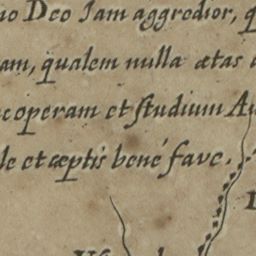 Deo Iam aggredior,
am, qualem nulla ætas
operam et studium
et cæptis bené fave.